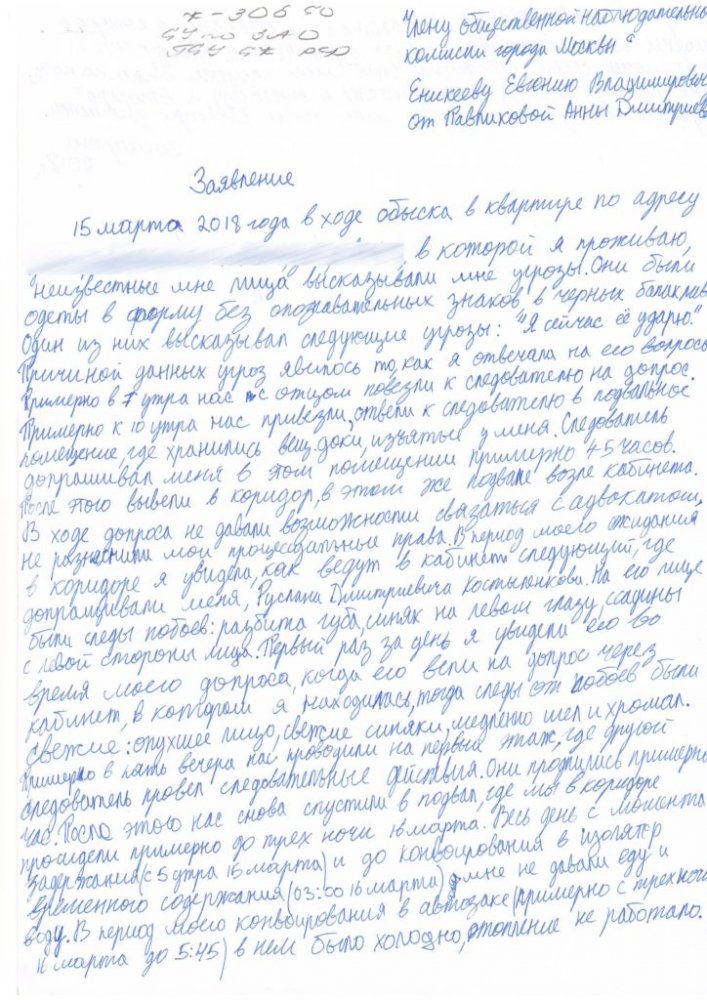 Члену общественной наблюдательно
комиссии города Москвы
Еникееву Евгению Владимирович
от Павликовой Анны Дмитриев
Заявление
15 марта 2018 года в ходе обыска в квартире по адресу
, в которой я проживаю,
"неизвестные мне лица" высказывали мне угрозы. Они были
одеты в форму без опознавательных знаков, в черных балаклав
Один из них высказывал следующие угрозы: "Я сейчас её ударю."
Причиной данных угроз явилось то, как я отвечала на его вопросы
Примерно в 7 утра нас с отцом повезли к следователю на допрос.
Примерно к 10 утра нас привезли, отвели к следователю в подвальное
помещение, где хранились вещ.доки, изъятые у меня. Следователь
допрашивал меня в этом помещении примерно 4-5 часов.
После этого вывели в коридор, в этом же подвале возле кабинета.
В ходе допроса не давали возможности связаться с адвокатом,
не разъяснили мои процессуальные права. В период моего ожидания
в коридоре я увидела, как ведут в кабинет следующий, где
допрашивали меня, Руслана Дмитриевича Костыленкова. На его лице
были следы побоев: разбита губа, синяк на левом глазу, ссадины
с левой стороны лица. Первый раз за день я увидела его во
время моего допроса, когда его вели на допрос через
кабинет, в котором я находилась, тогда следы от побоев были
свежие: опухшее лицо, свежие синяки, медленно шел и хромал.
Примерно в пять вечера нас проводили на первый этаж, где другой
следователь провел следовательные действия. Они продлились примерно
час. После этого нас снова спустили в подвал, где мы в коридоре
просидели примерно до трех ночи 16 марта. Весь день с момента
задержания (с 5 утра 15 марта) и до конвоирования в изолятор
временного содержания (03:00 16 марта) мне не давали еду и
воду. В период моего конвоирования в автозаке (примерно с трех ночи
16 марта до 5:45) в нем было холодно, отопление не работало.